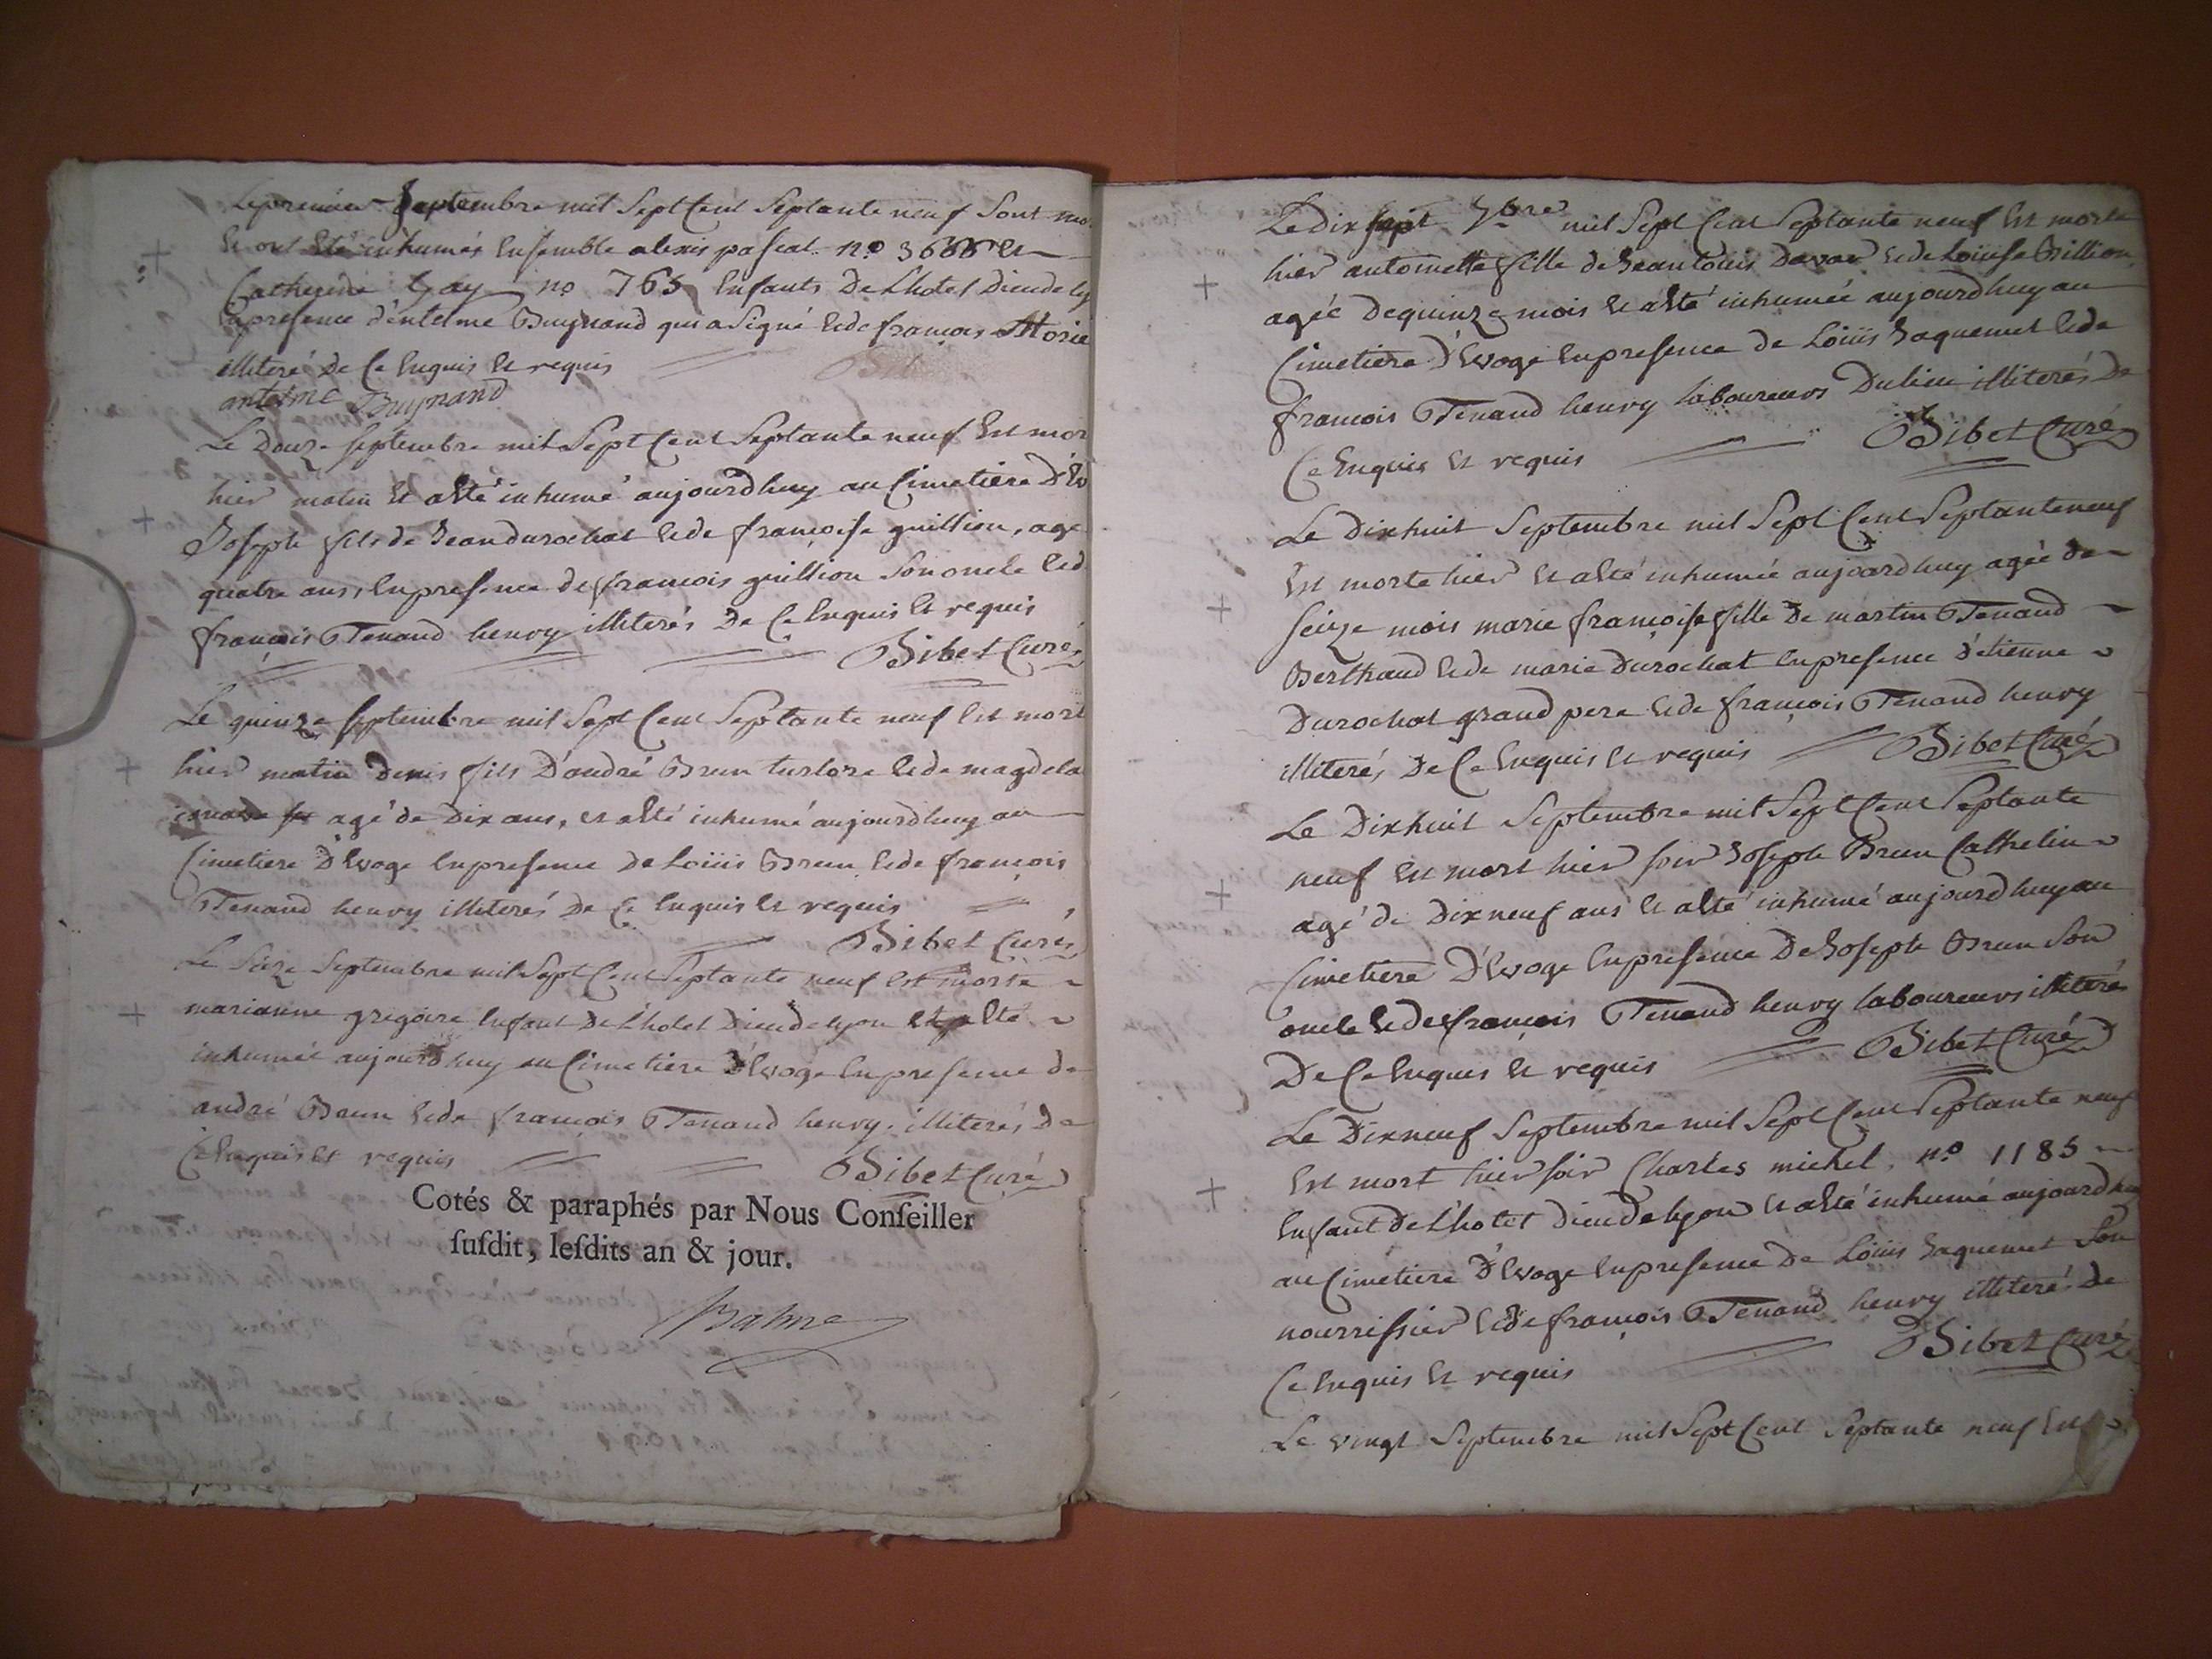 Le premier Septembre mil Sept Cent Septante neuf Sont mo
Et ont été inhumés Ensemble alexis pascal n.o 3666 et
Catherine Gay no 765 Enfants De Lhotel Dieu de ly
En presence d'entelme Buynand qui a Signé Et de françois
illiteré De Ce Enquis Et requis
antelme Buynand
Le Douze Septembre mil Sept Cent Septante neuf Est mor
hier matin Et a été inhumé aujourdhuy au Cimetière D'Ev
Joseph fils de Jean durochat Et de françoise guillion, age
quatre ans, En presence de françois guillion Son oncle Et d
françois Tenand henry illiterés De Ce Enquis Et requis
Bibet Curé
Le quinze Septembre mil Sept Cent Septante neuf Est mort
hier matin denis fils D'andré Brun turlore Et de magdela
agé de Dix ans, Et a été inhumé aujourdhuy au
Cimetiere D'Evoge En presence De Loüis Brun Et de françois
Tenand henry illiterés De Ce Enquis Et requis
Bibet Curé
Le Seize Septembre mil Sept Cent Septante neuf Est morte
marianne gregoire Enfant De Lhotel Dieu de lyon Et a été
inhumée aujourdhuy au Cimetiere D'Evoge En presence de
andré Brun Et de françois Tenand henry. illiterés De
Ce Enquis Et requis
Bibet Curé
Cotés & paraphés par Nous Conſeiller
ſuſdit, leſdits an & jour.
Balme
Le Dix Sept 7bre mil Sept Cent Septante neuf Est morte
hier antoinette fille de Jean Louis Davar Et de Loüise Billion
agée De quinze mois Et a été inhumée aujourdhuy au
Cimetiere D'Evoge En presence de Loüis Jaquemet Et de
françois Tenand henry laboureurs Du lieu illiterés De
Ce Enquis Et requis
Bibet Curé
Le Dixhuit Septembre mil Sept Cent Septante neuf
Est morte hier Et a été inhumée aujourdhuy agée de
Seize mois marie françoise fille De martin Tenand
Berthaud Et de marie Durochat En presence d'étienne
Durochat grand pere Et de françois Tenand henry
illiterés De Ce Enquis Et requis
Bibet Curé
Le Dixhuit Septembre mil Sept Cent Septante
neuf Est mort hier soir Joseph Brun Cathelin
agé de Dix neuf ans Et a été inhumé aujourdhuy au
Cimetiere D'Evoge En presence De Joseph Brun Son
oncle Et de françois Tenand henry laboureurs illiterés
De Ce Enquis Et requis
Bibet Curé
Le Dix neuf Septembre mil Sept Cent Septante neuf
Est mort hier soir Charles michel, n.o 1185
Enfant De Lhotel Dieu De lyon Et a été inhumé aujourdhuy
au Cimetiere D'Evoge En presence De Loüis Jaquemet Son
nourrissier Et de françois Tenand henry illiterés de
Ce Enquis Et requis
Bibet Curé
Le vingt Septembre mil Sept Cent Septante neuf Est